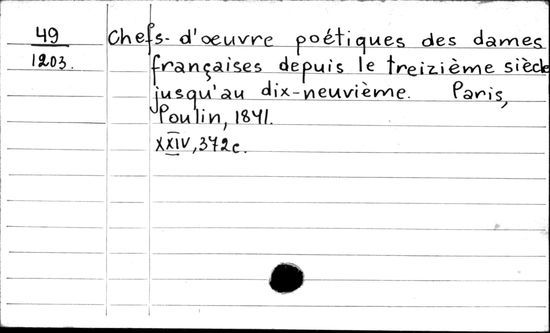 49
1203.
Chefs-d'œuvre poétiques des dames
françaises depuis le treizième siècle
jusqu'au dix-neuvième. Paris,
Poulin, 1841.
XXIV, 372c.